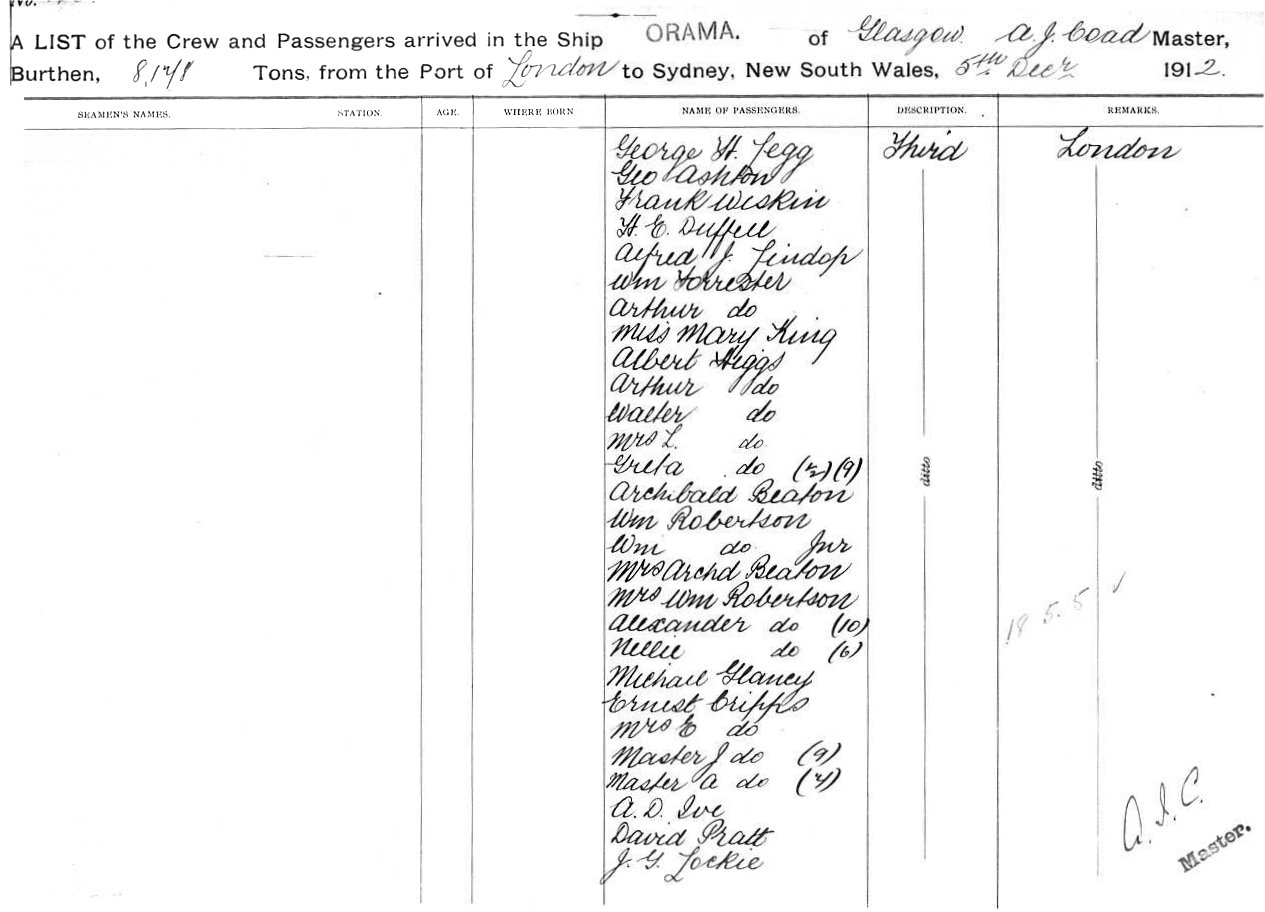 No.
A LIST of the Crew and Passengers arrived in the Ship ORAMA. of Glasgow. A. J. Coad Master,
Burthen, 8,148 Tons, from the Port of London to Sydney, New South Wales, 5th Decr 1912.
SEAMEN'S NAMES. STATION. AGE. WHERE BORN NAME OF PASSENGERS. DESCRIPTION. REMARKS.
George H. Tegg Third London
Geo Ashton
Frank Wiskin
H. E. Duffell
Alfred J. Lindop
Wm Forrester
Arthur do
Miss Mary King
Albert Higgs
Arthur do
Walter do
Mrs L. do
Greta do (9) ditto ditto
Archibald Beaton
Wm Robertson
Wm do Jnr
Mrs Archd Beaton
Mrs Wm Robertson
Alexander do (10)
Nellie do (6)
18 5. 5
Michael Glancy
Ernest Cripps
Mrs E do
Master J do (9)
Master A do
A. D. Ive
David Pratt
J. G. Lockie
Master.